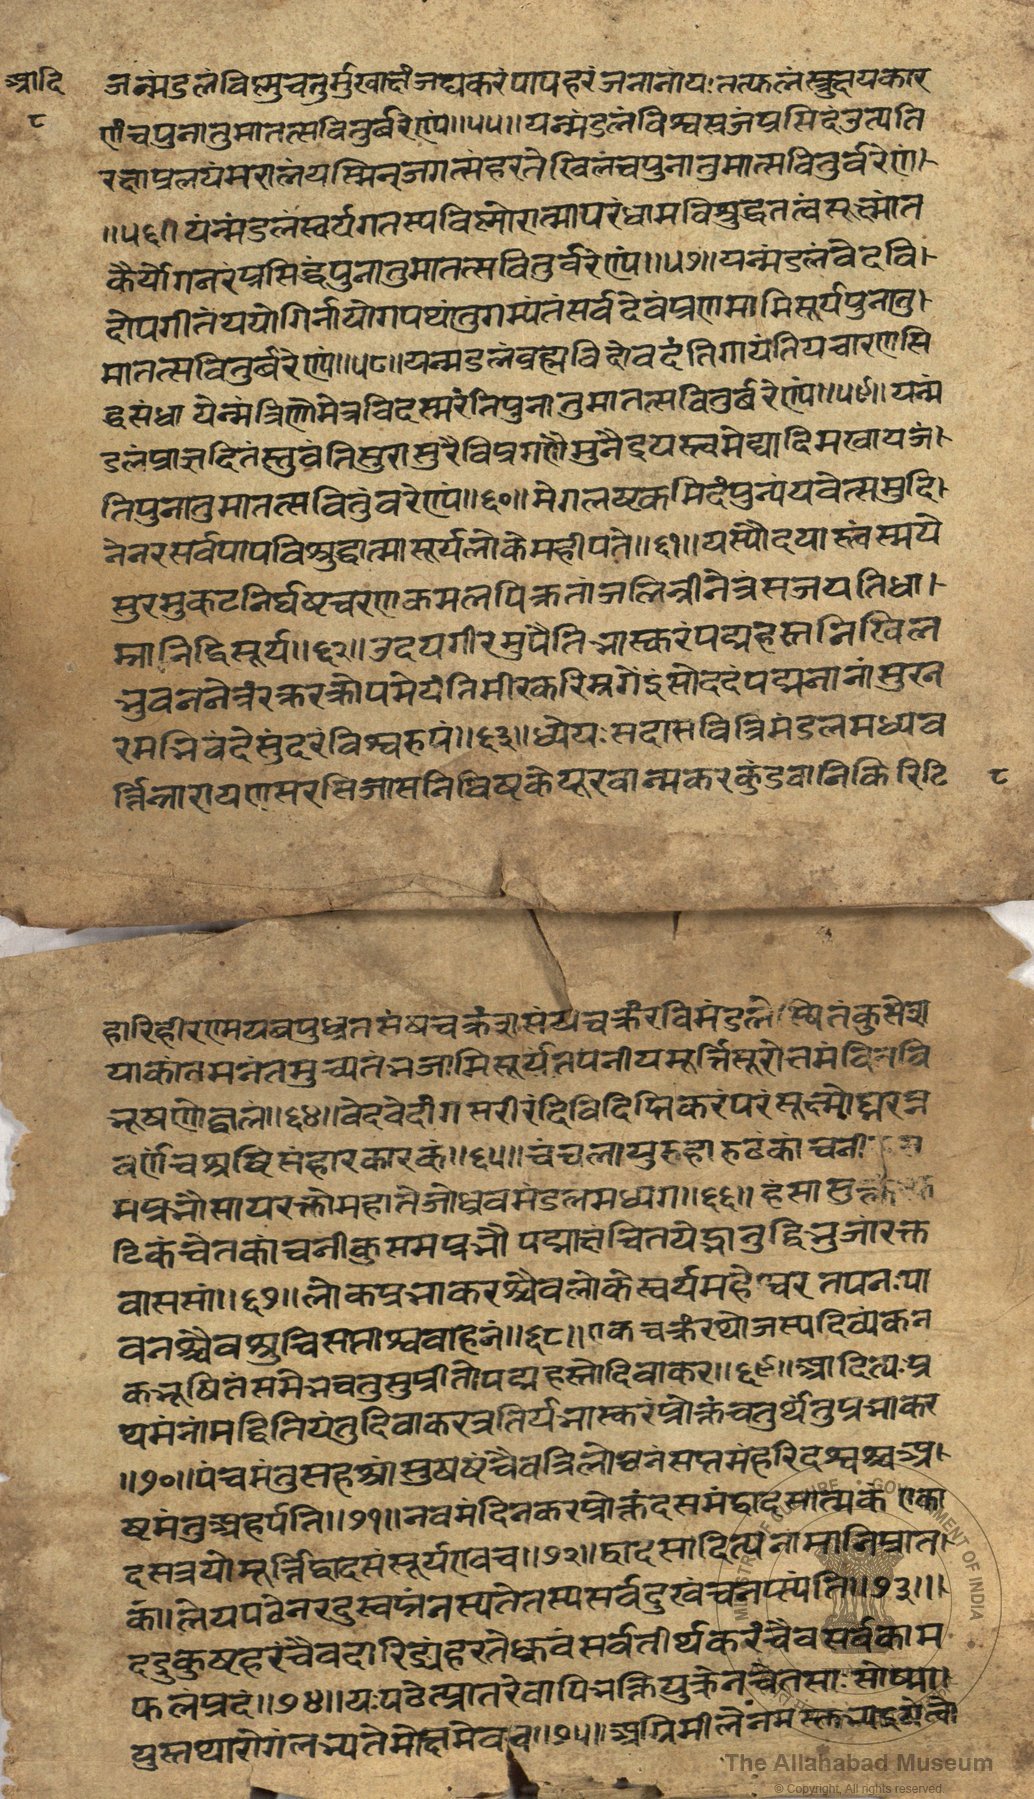 आदि
८
जन्मंडलंविष्णुचतुर्मुखाक्षंजद्यकरंपापहरंजनानांयःतत्फलंस्कुदायकार
णंचपुनातुमातत्सवितुर्बरेण्यं॥५५॥यन्मंडलंविश्वसृजंप्रसिदंउत्पति
रक्षाप्रलयंमरालंयस्मिन्जगत्संहरतेखिलंचपुनातुमात्सवितुर्वरेण्यं।
॥५६॥यन्मंडलंस्वर्यगतस्पविष्णोरात्मापरंधामविशुद्धतत्वंसूक्ष्मांत
कैर्योगनरंप्रसिद्धंपुनातुमातत्सवितुर्वरेण्यं॥५७॥यन्मंडलंवेदवि।
दोपगीतंययोगिर्नायोगपथांनुगम्यंतंसर्वदेवंप्रणमामिसूर्यपुनातु।
मातत्सवितुर्बरेण्यं॥५८॥यन्मडलंव्रह्मविदोवदंतिगायंतियचारणसि
द्धसंधा येन्मंत्रिणोमेत्रविदस्मरंतिपुनातुमातत्सवितुर्बरेण्यं॥५९॥यन्मं
डलंप्राज्ञदितंस्तुवंतिसुरासुरैविप्रगणैमुनैइयस्त्वमेद्यादिमखायजं।
तिपुनातुमातत्सवितुंवरेण्यं॥६०॥मेगलष्टकमिदंपुन्यंयवेत्समुदि।
नेनरसर्वपापविशुद्धात्मासूर्यलोकेमहीपते॥६१॥यस्यौदयास्त्वंस्मये
सुरमुकटनिर्घष्टचरणकमलपिक्रतांजलित्रीनेत्रंसजयतिधा।
म्नानिद्विसूर्य॥६२॥उदयगीरमुपैतिभास्करंपद्महस्तनिखिल
भुवननेत्रंरक्ररक्रोपमेयंतिमीरकरिम्रगेंद्रंसोददंपद्मनानांसुरन
रमभिवंदेसुंदरंविश्वरुपं॥६३॥ध्येयःसदासवित्रिमंडलमध्यव
र्त्तिन्नारायणसरसिजासनिविष्टकेयूरवान्मकरकुंडवानिकिरिटि
८
हारिहीरण्मयवपुधृतसंषचक्रंत्रासंयचक्रंरविमंडले
याकांतमनंतमुच्यतंभजामिसूर्यतपनीयमूर्त्तिसूरोत्तमंचित्रवि
भूषणोद्वालं॥६४॥वेदवेदांगसरीरंदिविदिप्तिकरंपरंसूक्ष्मोद्धरन्न
वर्णंचश्रष्टिसंहारकारकं॥६५॥चंचलायुरुहारुटंकांचनी
मप्रभौसायरक्तोमहातेजोध्रवमंडलमध्यग॥६६॥हंसा
टिकंचेतकांचनीकुसमप्रभौ पद्माक्षंचितयेद्भानुद्विभुजांरक्त
वाससां॥६७॥लोकप्रभाकरश्चैवलोकेस्वर्यमहेश्वर तपनःपा
वनश्चैवशुचिसप्ताश्ववाहनं॥६८॥एकचक्रंरथोजस्पदिव्यंकन
कभूषितंसमेभवतुसुप्रीतोपद्महस्तोदिवाकर॥६९॥आदित्यःप्र
थमंनांमद्वितियंतुदिवाकरत्रतिर्यभास्करंप्रोक्तंचतुर्थंनुप्रभाकर
॥७०॥पंचमंतुसहश्रांसुषष्टंचैवत्रिलोचनंसप्तमंहरिदश्वश्चप्र।
ष्टमंतुअहर्पति॥७१॥नवमंदिनकरप्रोक्तंदसमंद्वादसात्मकंएका
दसत्रयोमूर्त्तिद्वादसंसूर्यएवच॥७२॥द्वादसादित्यनामानिप्रात।
कं॥लेयपठेनरदुस्वप्नंनस्पतेतस्यसर्वदुखंचनप्संति॥७३॥।
ददुकुष्टहरंचैवदारिद्रयंहरतेध्रुवंसर्वतीर्थकरंचैवसर्वकाम
फलंप्रदं॥७४॥यःपठेत्प्रातरेवापिभक्तियुक्तेनचेतसाःसोष्मा।
युस्तथारोगंलभ्यतेमोक्षमेवच॥७५॥अग्निमीलेनंम
MINISTRY OF CULTURE GOVERNMENT OF INDIA
The Allahabad Museum
© Copyright, All rights reserved.